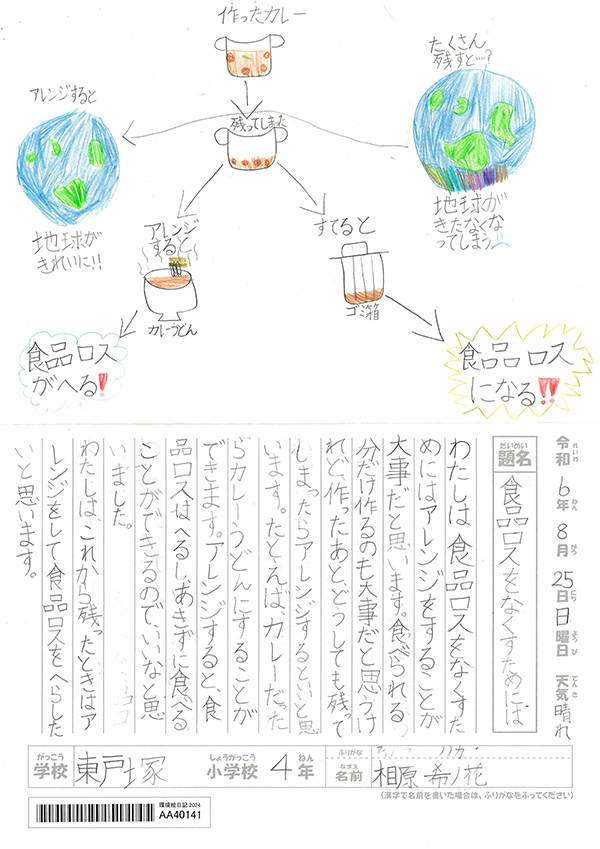 作ったカレー
残ってしまった
アレンジすると
地球が
きれいに!!
たくさん
残すと…?
地球が
きたなくな
ってしまう
アレンジ
すると
カレーうどん
すてると
ゴミ箱
食品ロス
がへる!
食品ロス
になる!!
令和6年8月25日日曜日 天気晴れ
れいわ ねん がつ にち ようび てんき
だいめい
題名
食品ロスをなくすためには
わたしは食品ロスをなくすた
めにはアレンジをすることが
大事だと思います。食べられる
分だけ作るのも大事だと思うけ
れど、作ったあと、どうしても残って
しまったらアレンジするといいと思
います。たとえば、カレーだった
らカレーうどんにすることが
できます。アレンジすると、食
品ロスはへるし、あきずに食べる
ことができるので、いいなと思
いました。
わたしは、これから残ったときはア
レンジをして食品ロスをへらした
いと思います。
がっこう
学校
東戸塚
しょうがっこう
小学校
4
ねん
年
ふりがな
なまえ
名前
相原 希ノ花
(漢字で名前を書いた場合は、ふりがなをふってください)
環境絵日記2024
AA40141